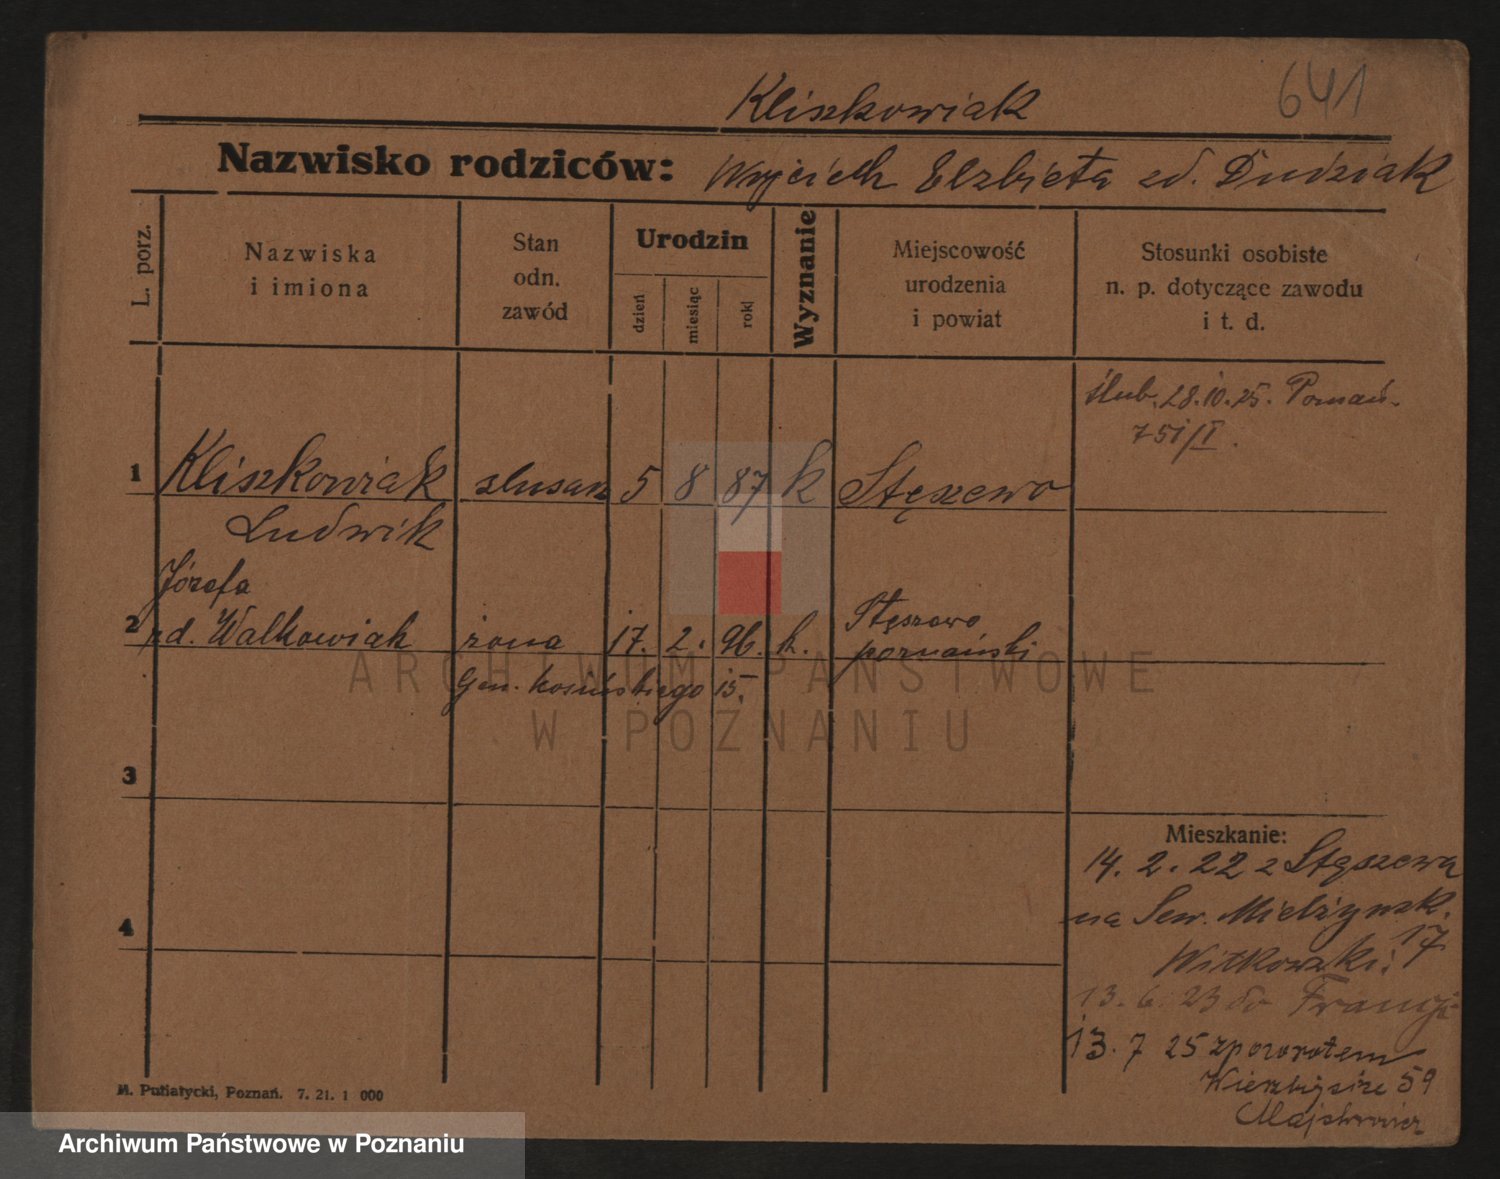 641
Kliszkowiak
Nazwisko rodziców: Wojciech Elzbieta zd. Dudziak
L. porz.
Nazwiska
i imiona
Stan
odn.
zawód
Urodzin
dzień
miesiąc
rok
Wyznanie
Miejscowość
urodzenia
i powiat
Stosunki osobiste
n. p. dotyczące zawodu
i t. d.
ślub. 28.10.25. Poznań.
751/I.
1 Kliszkowiak slusarz 5 8 87 k Stęszewo
Ludwik
Józefa
2 zd. Walkowiak żona 17. 2. 96. k. Stęszewo
poznański
Gen. Kosińskiego 15.
ARCHIWUM PAŃSTWOWE
W POZNANIU
3
Mieszkanie:
14. 2. 22 z Stęszewa
na Sew. Mielżyńsk. 17
Witkowski.
4
13. 6. 23 do Francji
13. 7 25 zpowrotem
Wierzbięcice 59
M. Putiatycki, Poznań. 7. 21. 1 000
Archiwum Państwowe w Poznaniu